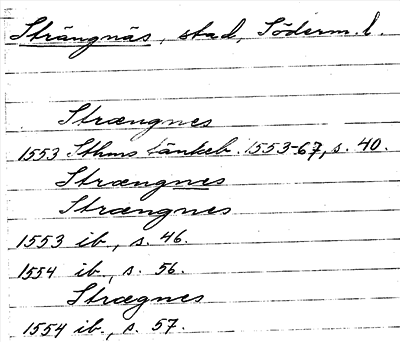 Strängnäs, stad, Söderm. l.
Strængnes
1553 Sthms tänkeb. 1553-67, s. 40.
Strængnes
Strængnes
1553 ib., s. 46.
1554 ib., s. 56.
Strægnes
1554 ib., s. 57.